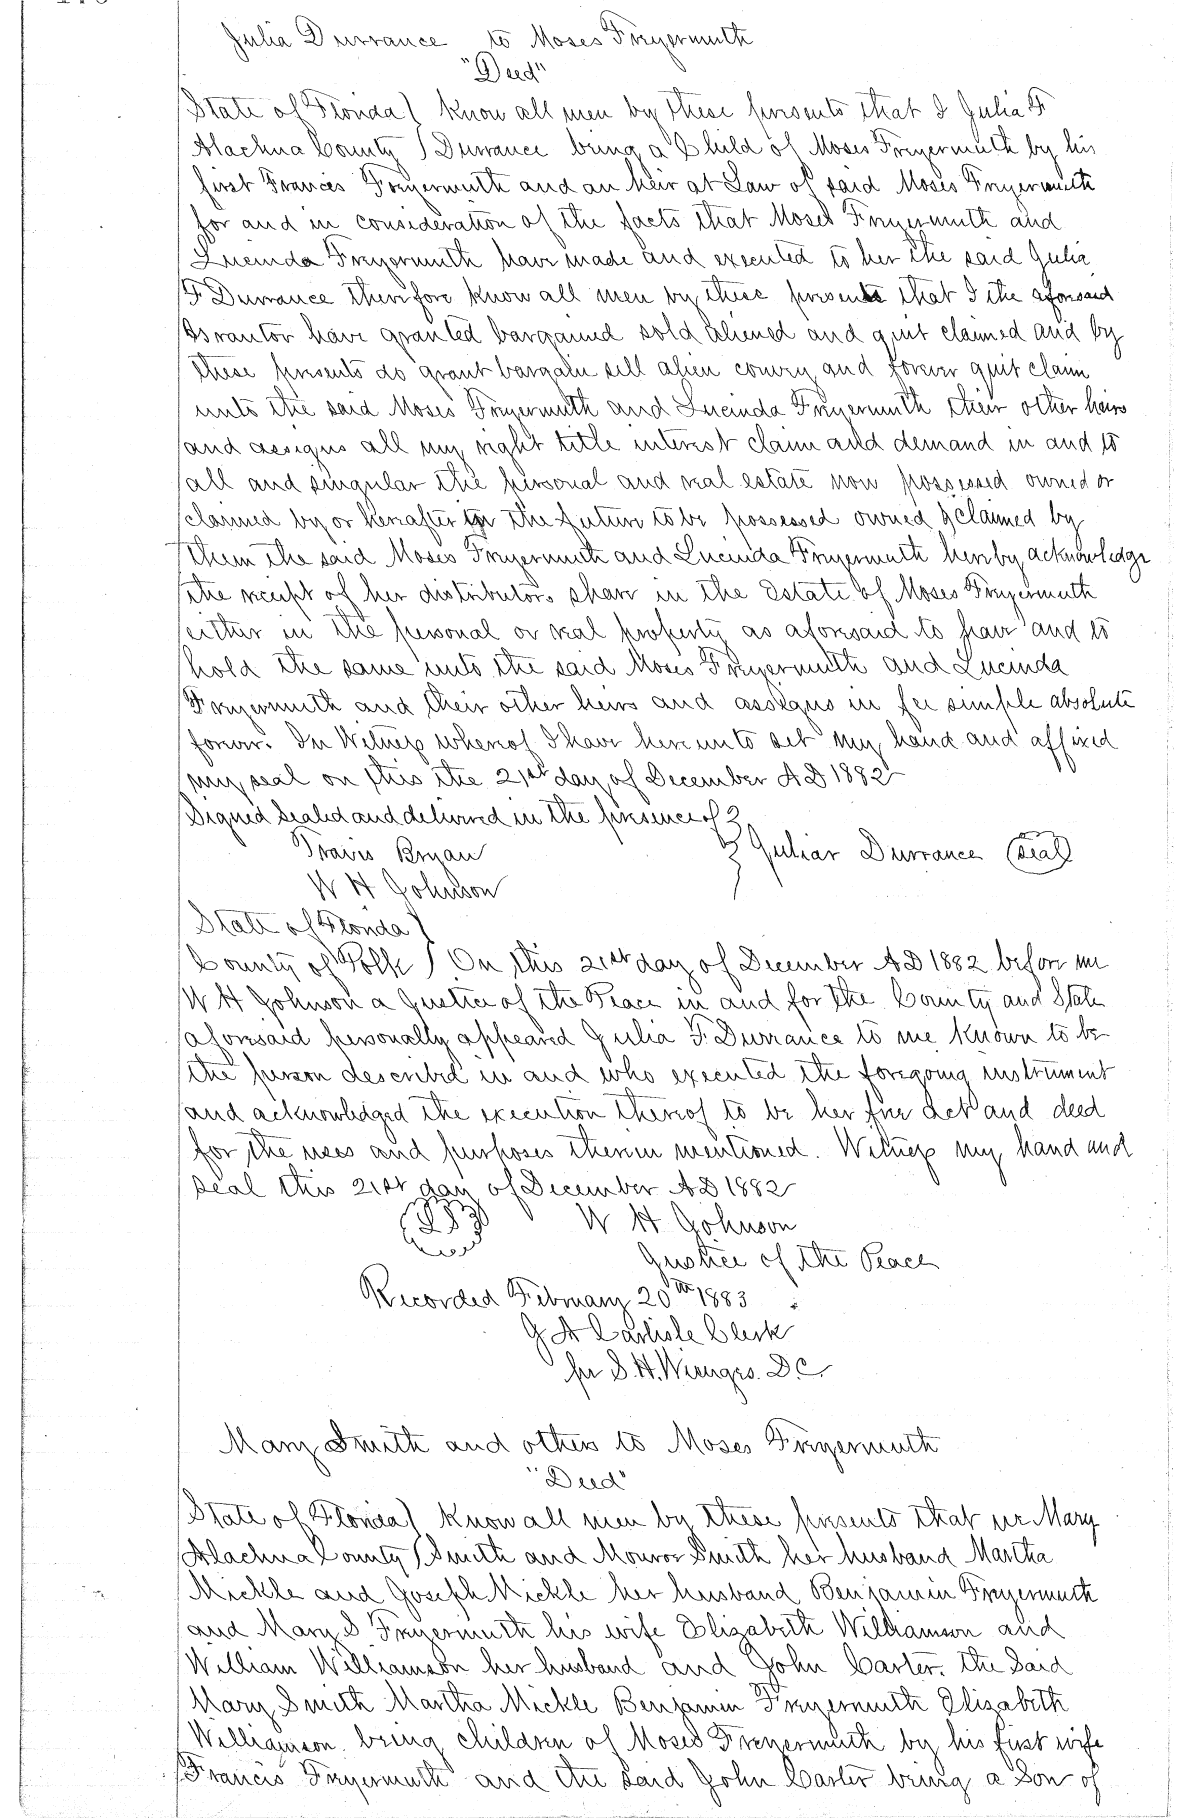 Julia Durrance to Moses Freyermuth
"Deed"
State of Florida ) Know all men by these presents that I Julia F
Alachua County ) Durrance being a Child of Moses Freyermuth by his
first Frances Freyermuth and an heir at Law of said Moses Freyermuth
for and in consideration of the facts that Moses Freyermuth and
Lucinda Freyermuth have made and executed to her the said Julia
F Durrance therefore know all men by these presents that I the aforesaid
Grantor have granted bargained sold aliened and quit claimed and by
these presents do grant bargain sell alien convey and forever quit claim
unto the said Moses Freyermuth and Lucinda Freyermuth their other heirs
and assigns all my right title interest claim and demand in and to
all and singular the personal and real estate now possessed owned or
claimed by or hereafter in the future to be possessed owned & claimed by
them the said Moses Freyermuth and Lucinda Freyermuth hereby acknowledge
the receipt of her distributors share in the Estate of Moses Freyermuth
either in the personal or real property as aforesaid to have and to
hold the same unto the said Moses Freyermuth and Lucinda
Freyermuth and their other heirs and assigns in fee simple absolute
forever. In Witness whereof I have hereunto set my hand and affixed
my seal on this the 21st day of December A D 1882
Signed Sealed and delivered in the presence of
Travis Bryan
Juliar Durrance (Seal)
W H Johnson
State of Florida )
County of Polk ) On this 21st day of December A D 1882 before me
W H Johnson a Justice of the Peace in and for the County and State
aforesaid personally appeared Julia F. Durrance to me known to be
the person described in and who executed the foregoing instrument
and acknowledged the execution thereof to be her free act and deed
for the uses and purposes therein mentioned. Witness my hand and
seal this 21st day of December A D 1882
W H Johnson
Justice of the Peace
Recorded February 20th 1883
J A Carlisle Clerk
per S. H. Wienges. D.C.
Mary Smith and others to Moses Freyermuth
"Deed"
State of Florida ) Know all men by these presents that we Mary
Alachua County ) Smith and Monroe Smith her husband Martha
Mickle and Joseph Mickle her husband Benjamin Freyermuth
and Mary S Freyermuth his wife Elizabeth Williamson and
William Williamson her husband and John Carter. the Said
Mary Smith Martha Mickle Benjamin Freyermuth Elizabeth
Williamson being children of Moses Freyermuth by his first wife
Francis Freyermuth and the said John Carter being a Son of